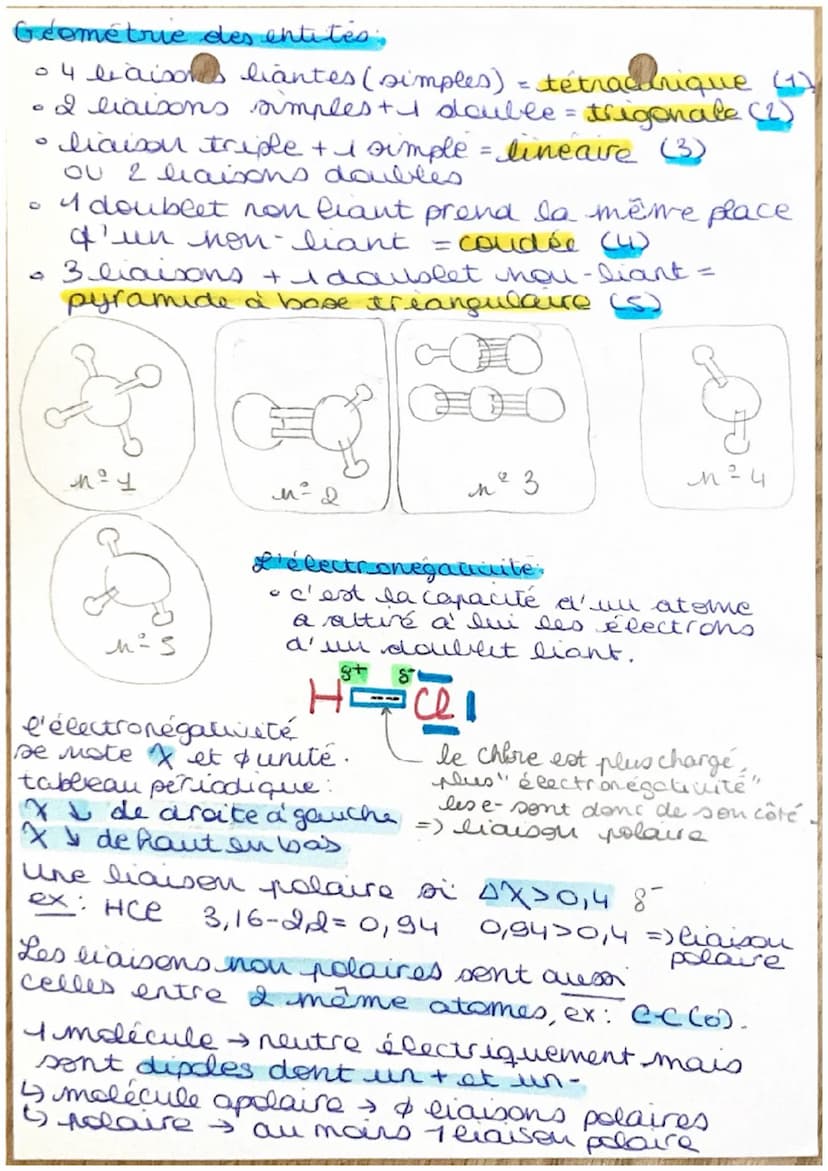 Géométrie des entités:
• 4 liaisons liantes (simples) = tétraédrique (1)
• 2 liaisons simples + 1 double = trigonale (2)
• liaison triple + 1 simple = linéaire (3)
ou 2 liaisons doubles
• 1 doublet non liant prend la même place
q'un non-liant = coudée (4)
• 3 liaisons + 1 doublet non-liant =
pyramide à base triangulaire (5)
n° 1
n° 2
n° 3
n° 4
n° 5
L'électronégativité:
• c'est la capacité d'un atome
a attiré à lui les électrons
d'un doublet liant.
δ+ δ-
H Cl
l'électronégativité
se note χ et ∅ unité.
tableau périodique:
χ ↓ de droite à gauche
χ ↓ de haut en bas
le chlore est plus chargé,
plus "électronégativité"
les e- sont donc de son côté.
=> liaison polaire
Une liaison polaire si Δχ>0,4 δ-
ex: HCl 3,16-2,2= 0,94 0,94>0,4 => liaison
polaire
Les liaisons non polaires sont aussi
celles entre 2 même atomes, ex: C-C (0).
1 molécule → neutre électriquement mais
sont dipoles dont un + et un -
↳ molécule apolaire → ∅ liaisons polaires
↳ polaire → au moins 1 liaison polaire